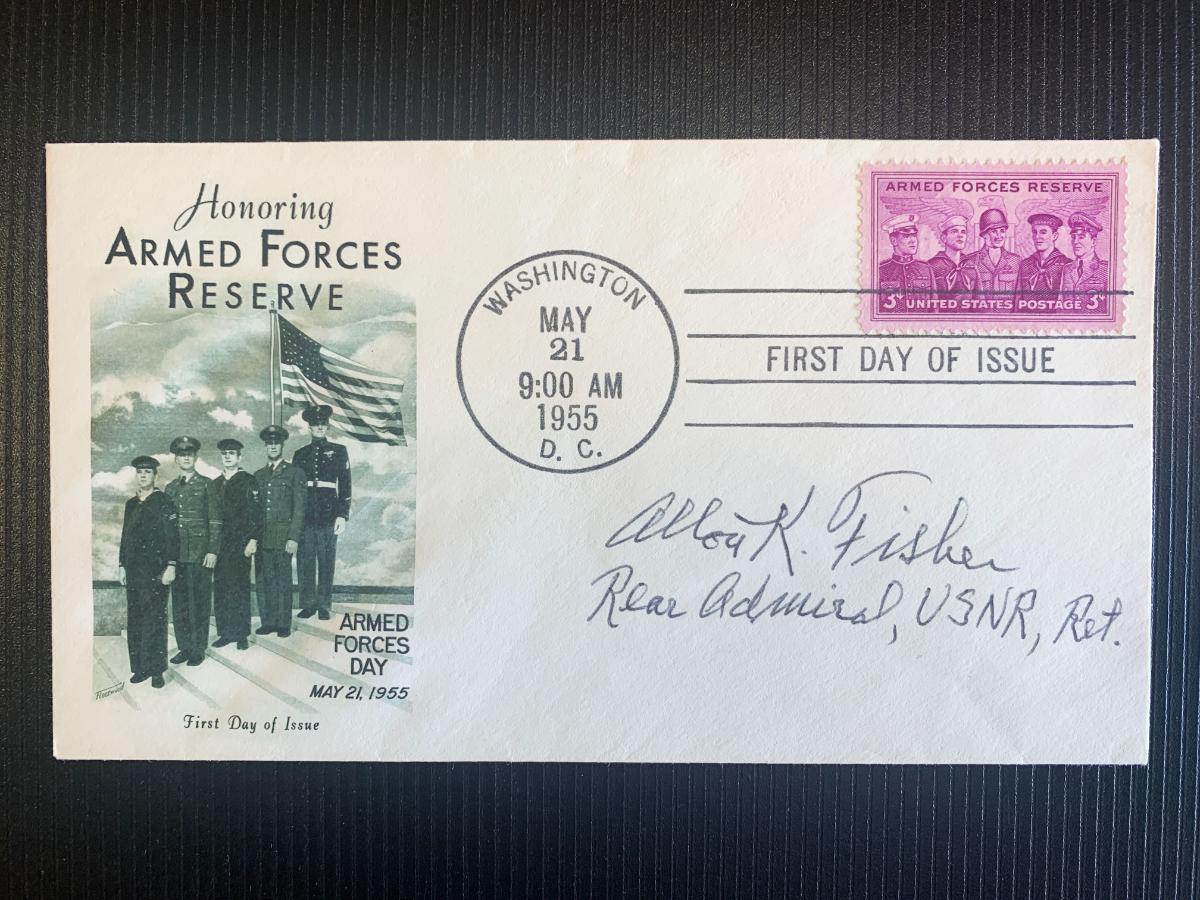 Honoring
ARMED FORCES
RESERVE
ARMED FORCES RESERVE
3¢ UNITED STATES POSTAGE 3¢
WASHINGTON
MAY
21
9:00 AM
1955
D. C.
FIRST DAY OF ISSUE
Allon K. Fisher
Rear Admiral, USNR, Ret.
ARMED
FORCES
DAY
MAY 21, 1955
Fleetwood
First Day of Issue